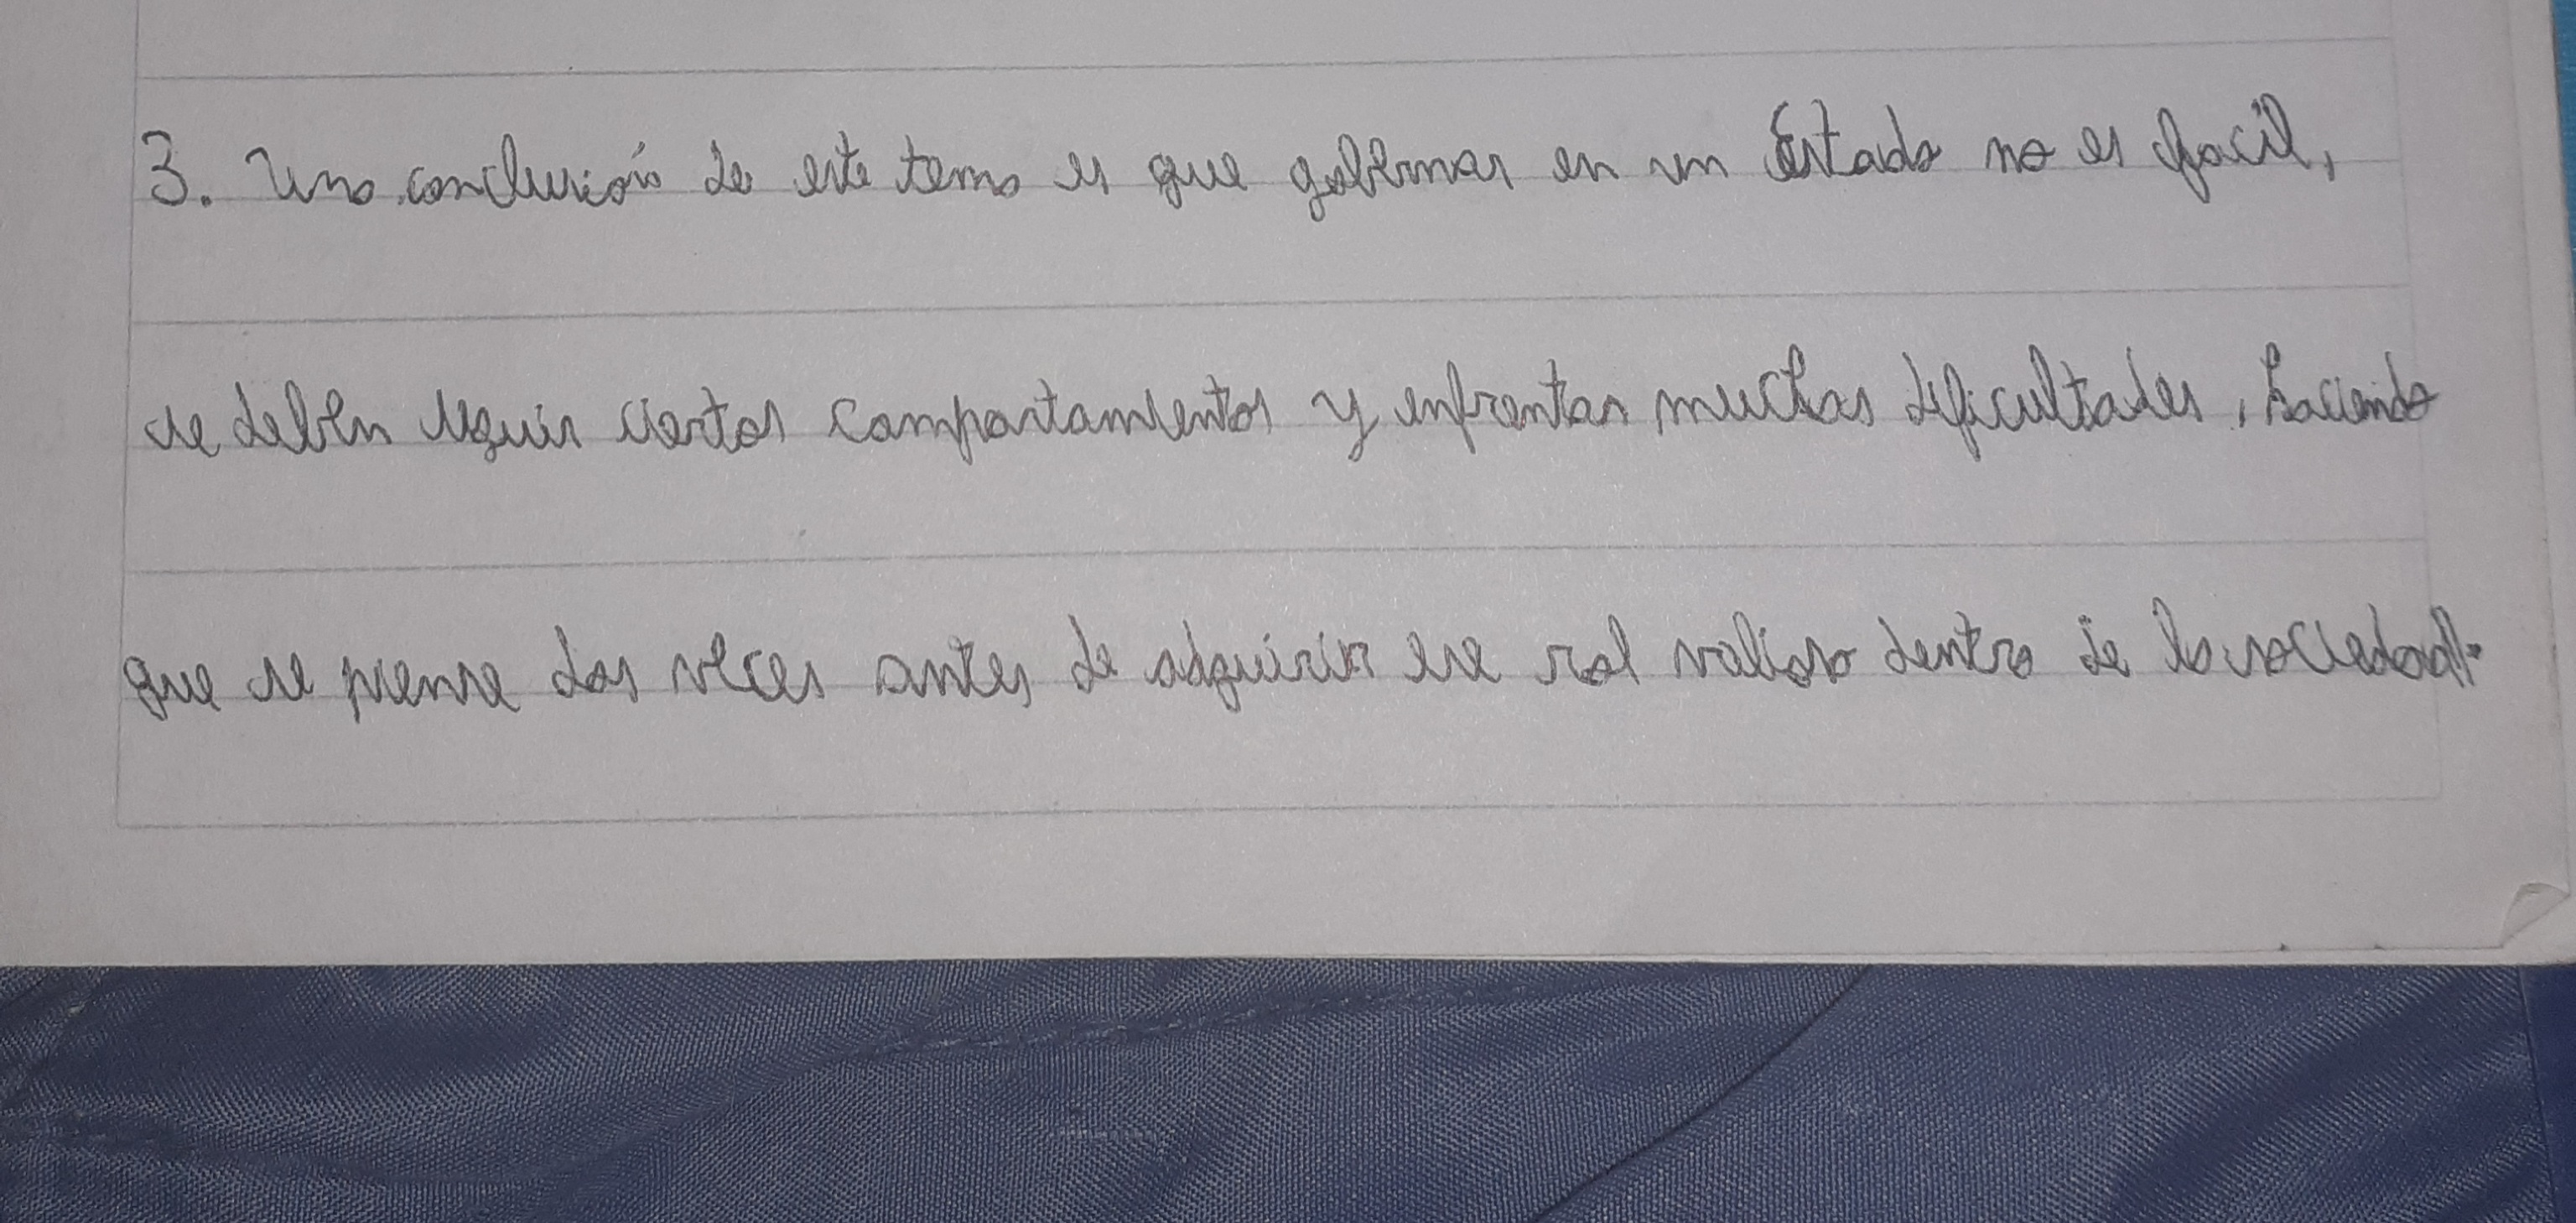 3. Una conclusión de este tema es que gobernar en un Estado no es facil,
se deben seguir ciertos comportamientos y enfrentar muchas dificultades, haciendo
que se piense dos veces antes de adquirir ese rol valioso dentro de la sociedad.